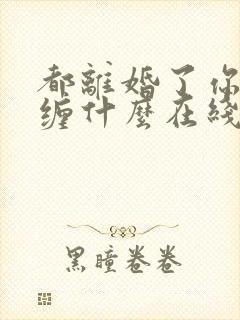 都離婚了你
缠什麼在綫
黑瞳卷卷